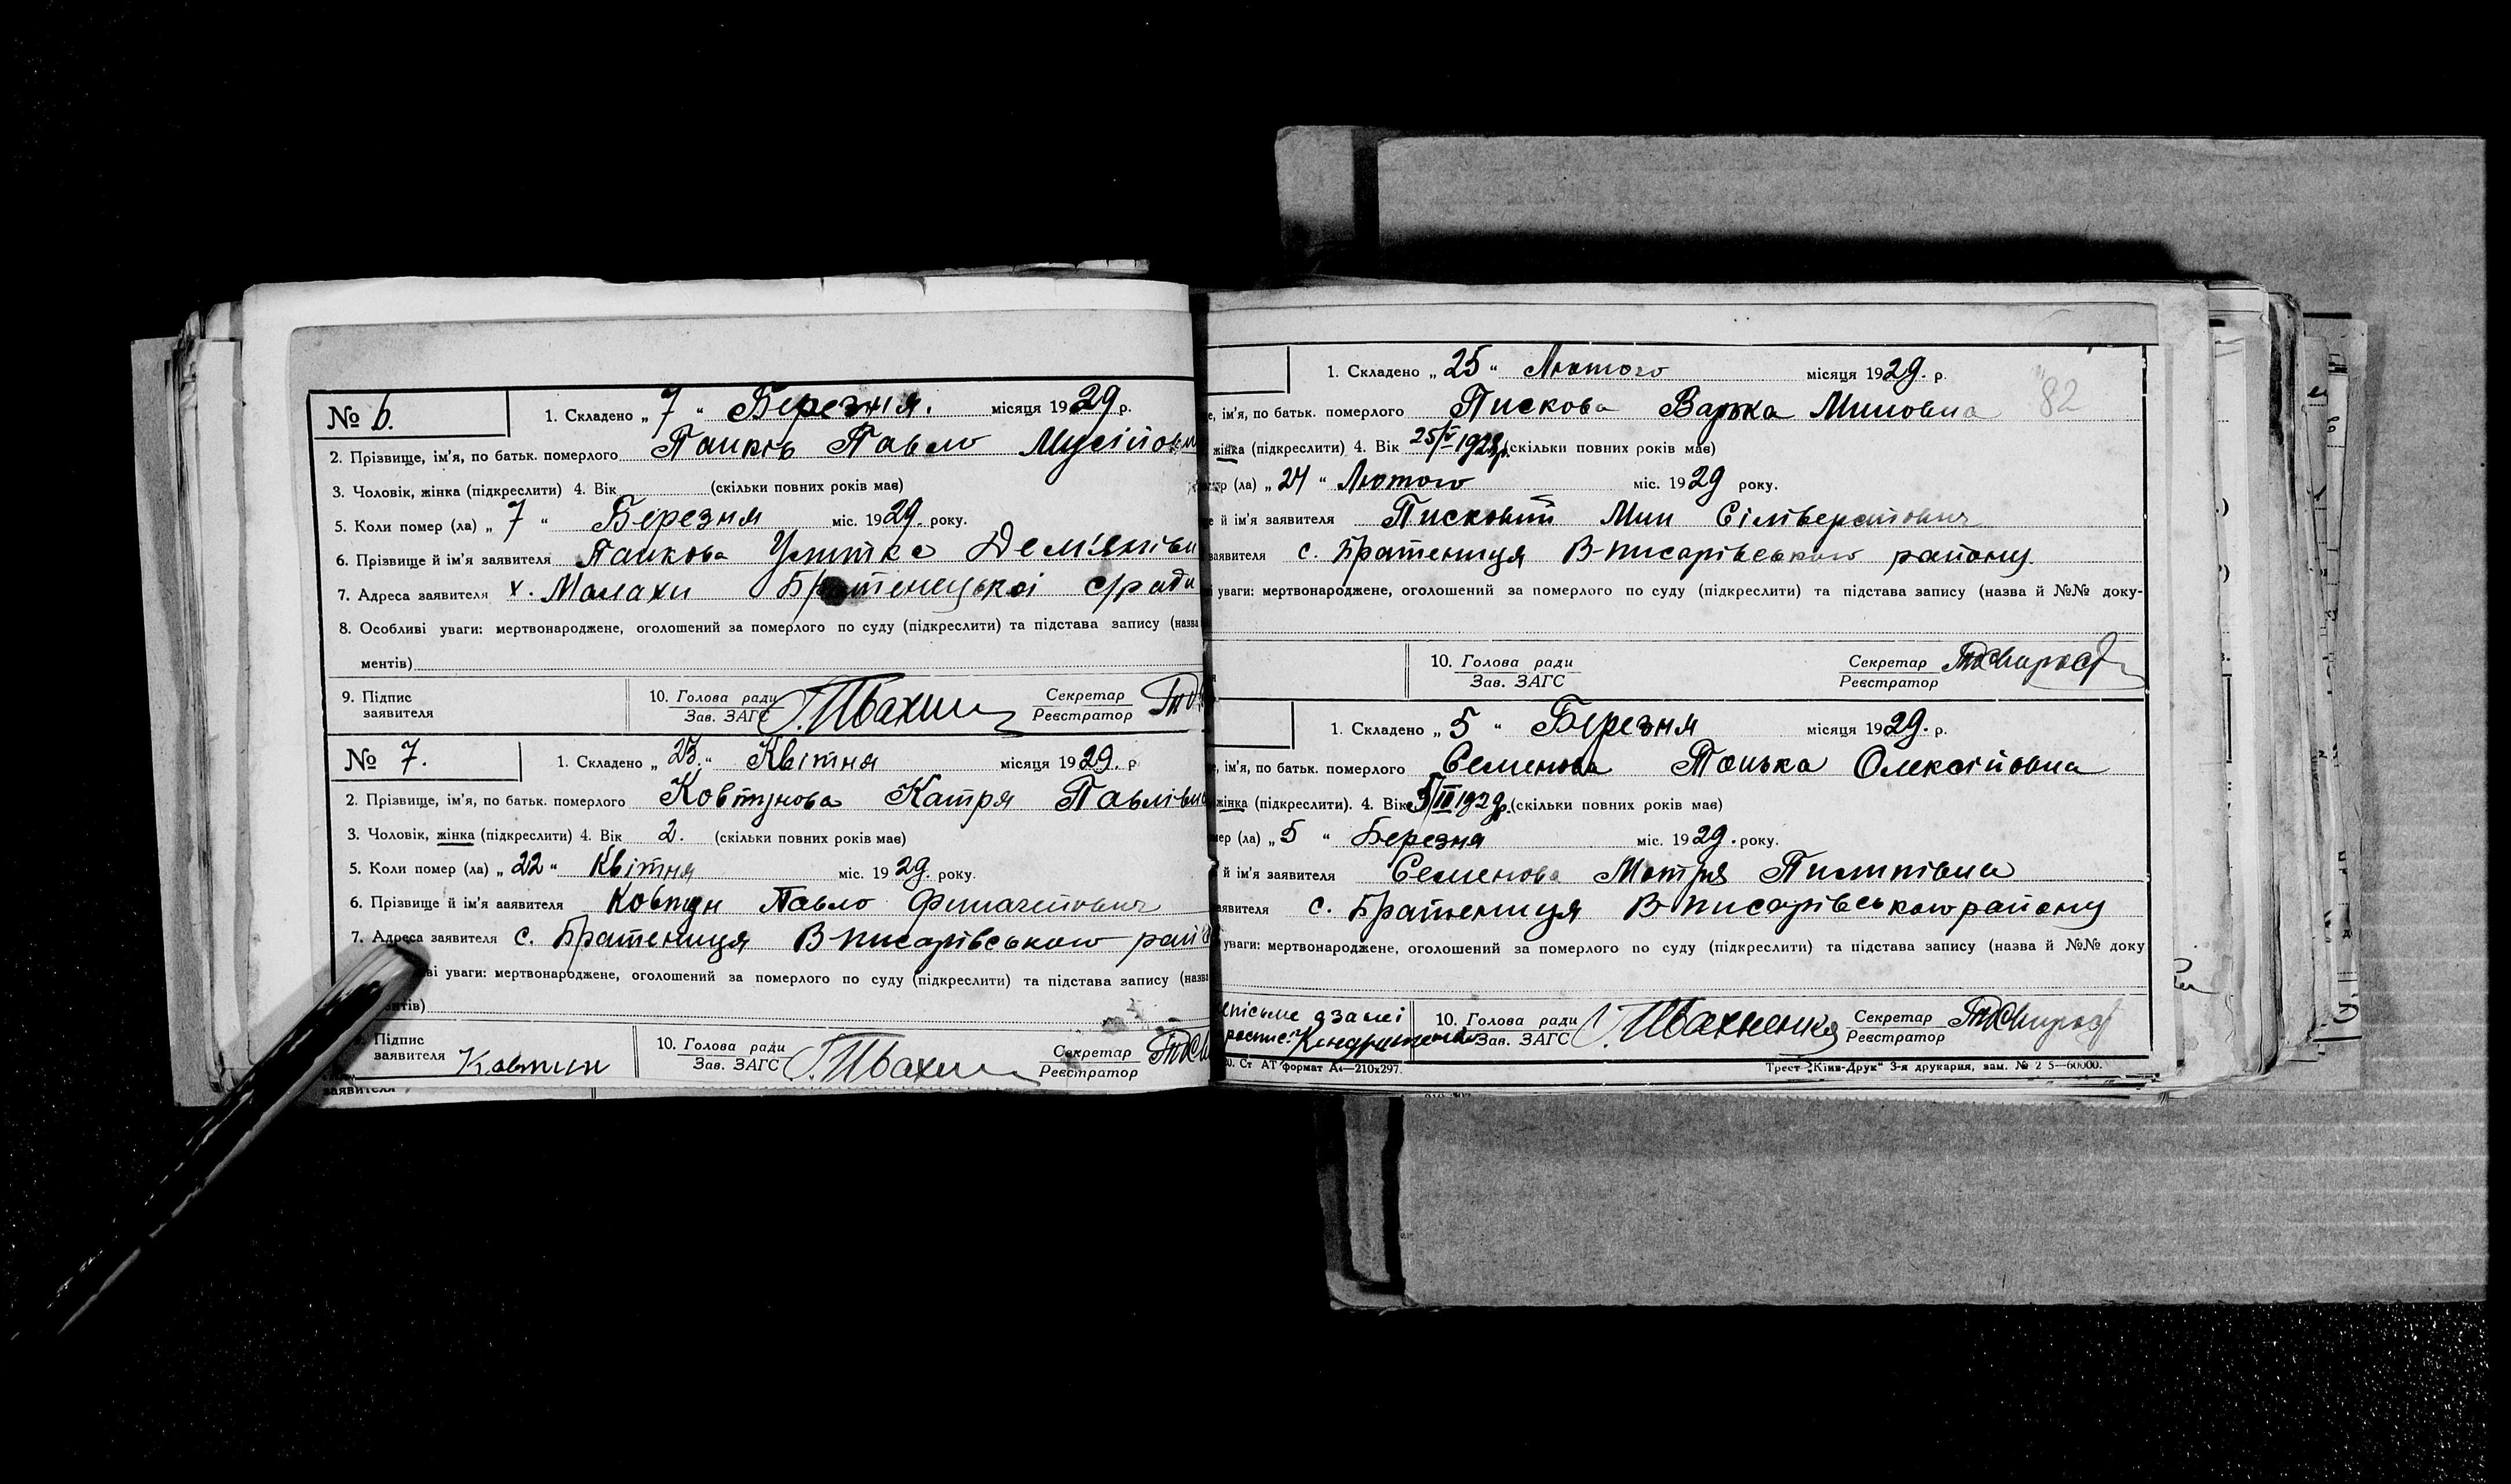 № 6.
1. Складено „ 7 “ Березня. місяця 1929 р.
2. Прізвище, ім'я, по батьк. померлого Панків Павло Мусійови
3. Чоловік, жінка (підкреслити) 4. Вік (скільки повних років має)
5. Коли помер (ла) „ 7 “ Березня міс. 1929. року.
6. Прізвище й ім'я заявителя Панкова Улитка Дем'янівн
7. Адреса заявителя х. Малахи Братеницької с/ради
8. Особливі уваги: мертвонароджене, оголошений за померлого по суду (підкреслити) та підстава запису (назва
ментів)
9. Підпис заявителя
10. Голова ради Зав. ЗАГС
Секретар Реєстратор
№ 7.
1. Складено „ 23. “ Квітня місяця 1929. р
2. Прізвище, ім'я, по батьк. померлого Ковтунова Катря Павлівна
3. Чоловік, жінка (підкреслити) 4. Вік 2. (скільки повних років має)
5. Коли помер (ла) „ 22 “ Квітня міс. 1929. року.
6. Прізвище й ім'я заявителя Ковтун Павло
7. Адреса заявителя с. Братениця В-писарівського рай
ві уваги: мертвонароджене, оголошений за померлого по суду (підкреслити) та підстава запису (назва
ентів)
Підпис заявителя Ковтун
10. Голова ради Зав. ЗАГС
Секретар Реєстратор
заявителя
1. Складено „ 25 “ Лютого місяця 1929. р.
82
е, ім'я, по батьк. померлого Пискова Варька Миновна
жінка (підкреслити) 4. Вік 25/V 1928р. (скільки повних років має)
ер (ла) „ 24 “ Лютого міс. 1929 року.
е й ім'я заявителяПисковий Мин
заявителя с. Братениця В-писарівського району.
і уваги: мертвонароджене, оголошений за померлого по суду (підкреслити) та підстава запису (назва й №№ доку-
10. Голова ради Зав. ЗАГС
Секретар Реєстратор
1. Складено „ 5 “ Березня місяця 1929. р.
е, ім'я, по батьк. померлого Семенова Понька Олексійовна
жінка (підкреслити). 4. Вік 5/III 1929р. (скільки повних років має)
мер (ла) „ 5 “ Березня міс. 1929. року.
й ім'я заявителя Семенова Мотря Пилипівна
аявителя с. Братениця В-писарівського району
уваги: мертвонароджене, оголошений за померлого по суду (підкреслити) та підстава запису (назва й №№ доку
10. Голова ради Зав. ЗАГС Івахненко
Секретар Реєстратор
0. Ст АТ формат А4—210х297.
Трест „Київ-Друк“ 3-я друкарня, зам. № 2 5—60000.